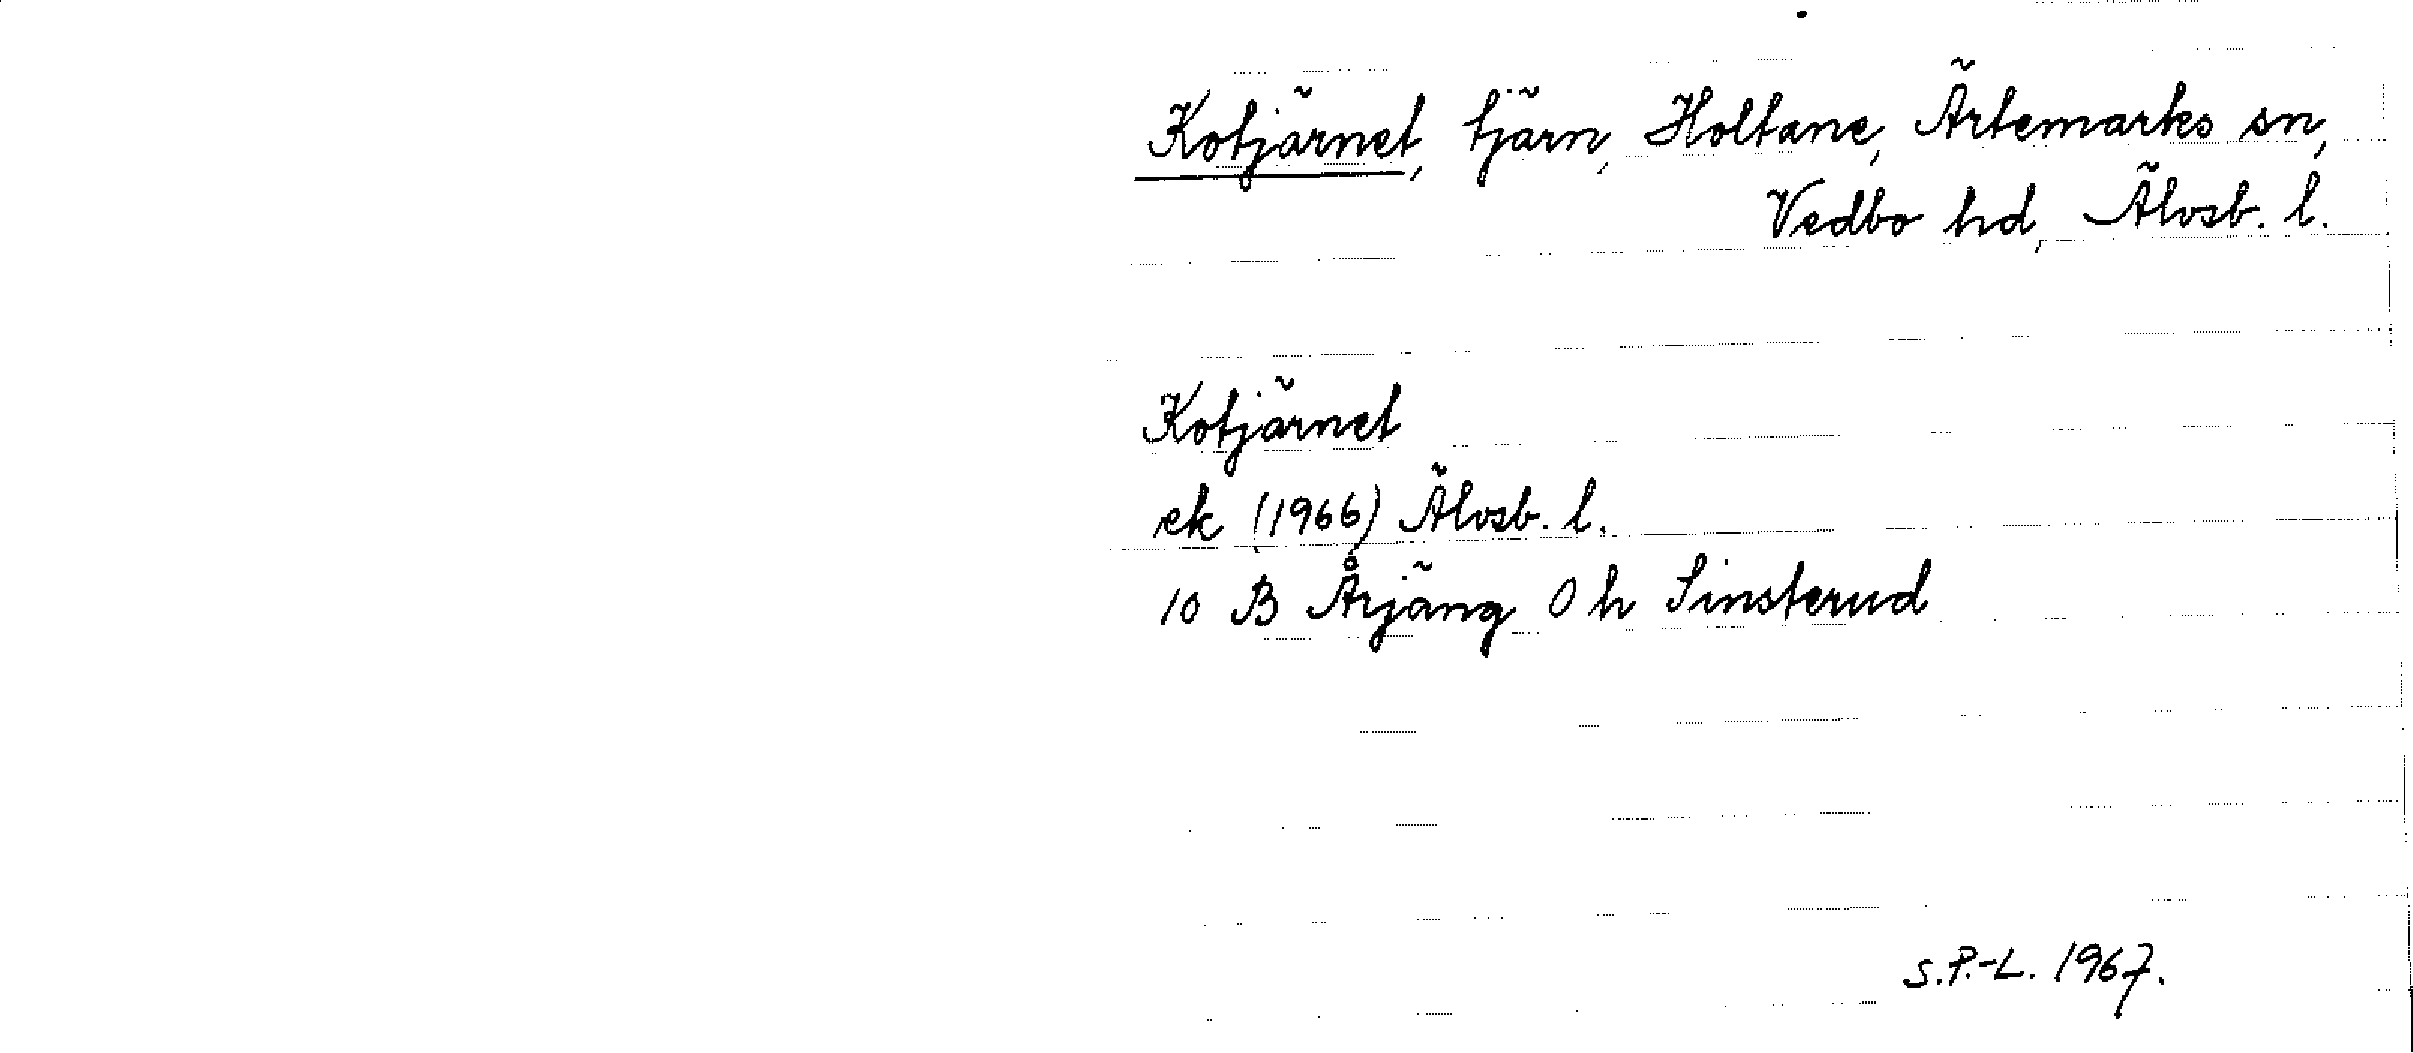 Kotjärnet, tjärn, Holtane, Ärtemarks sn,
Vedbo hd, Älvsb. l.
Kotjärnet
ek (1966) Älvsb. l.
10 B Årjäng 0 h Sinsterud
S.P.-L. 1967.